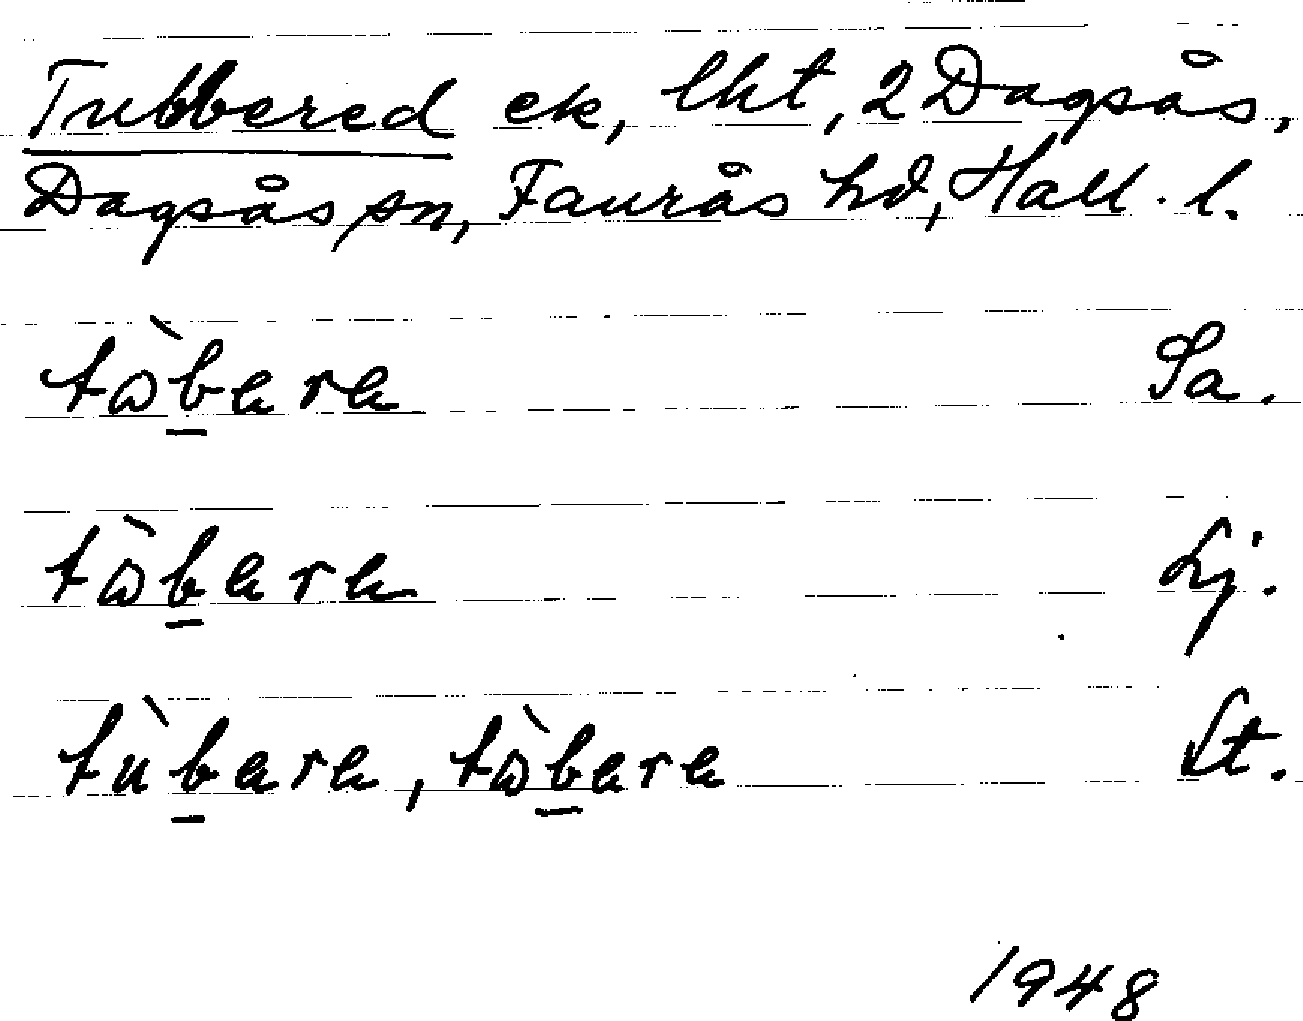 Tubbered ek, lht, 2 Dagsås,
Dagsås sn, Faurås hd, Hall. l.
tɷ̀b̲ara Sa.
tɷ̀b̲ara Lj.
tùb̲ara, tɷ̀b̲ara St.
1948